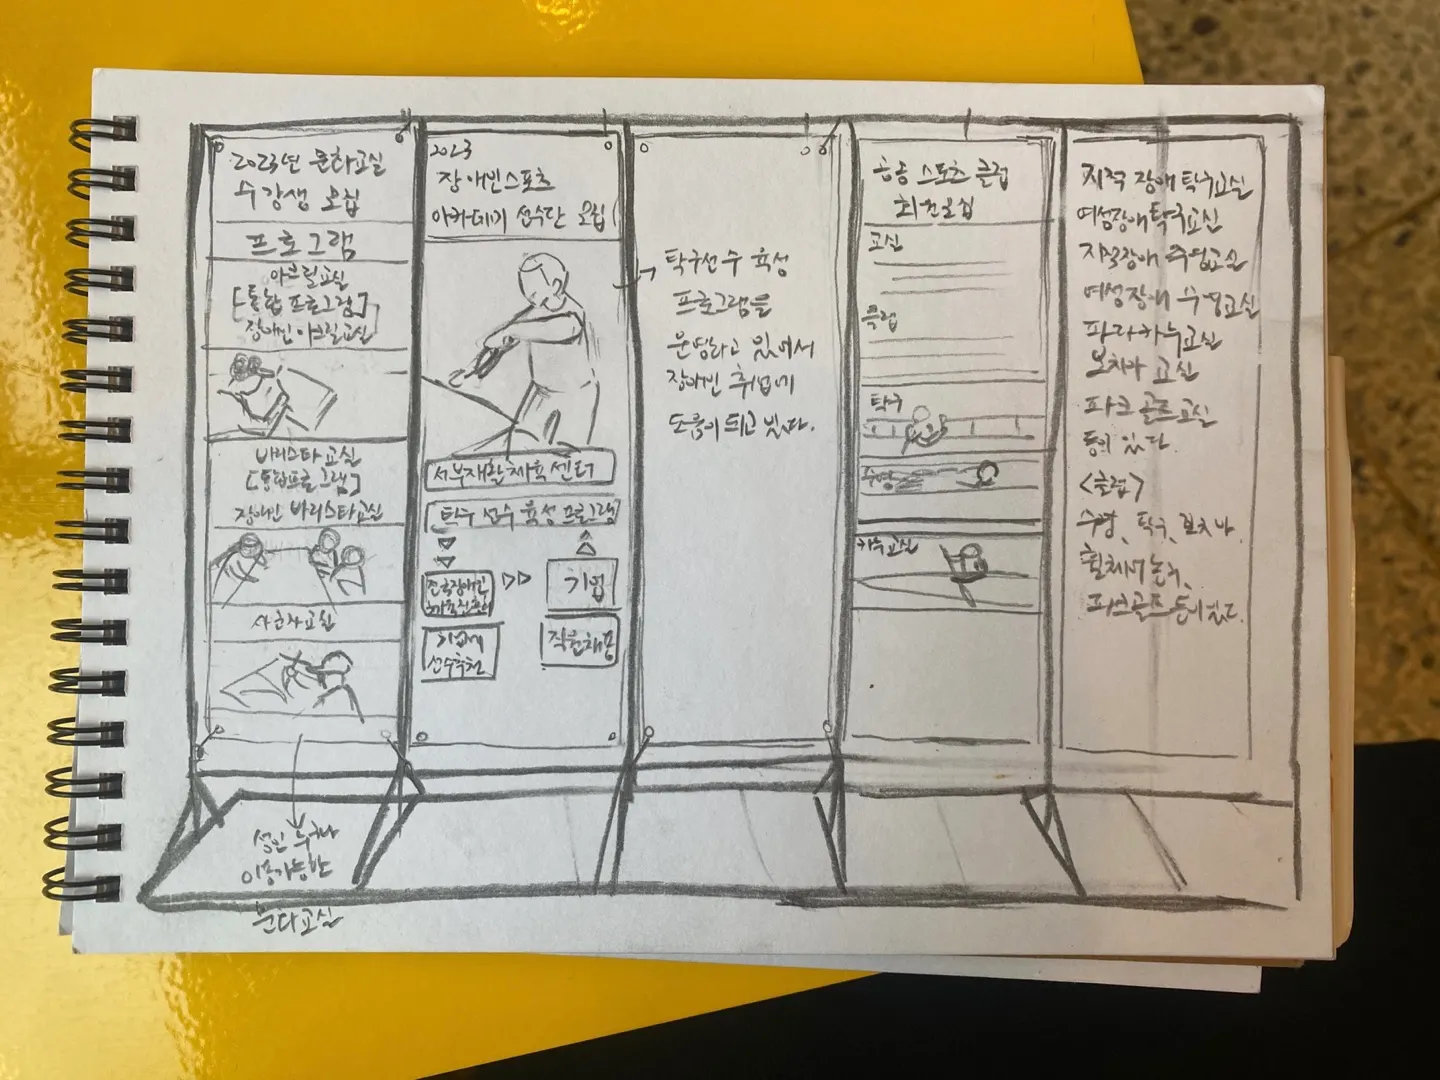 2023년 문화교실
수강생 모집
프로그램
아크릴교실
[통합 프로그램]
장애인 아크릴교실
바리스타교실
[통합프로그램]
장애인 바리스타교실
성인 누구나
이용가능한
문화교실
2023
장애인스포츠
아카데미 선수단 모집
서부재활체육센터
탁구 선수 육성 프로그램
기업에
선수추천
기업
직원채용
탁구선수 육성
프로그램을
운영하고 있어서
장애인 취업에
도움이 되고 있다.
공공 스포츠 클럽
회원모집
교실
클럽
탁구
수영
카누교실
지적 장애 탁구교실
여성장애 탁구교실
지적장애 수영교실
여성장애 수영교실
파라카누교실
보치아 교실
파크 골프교실
등이 있다.
<클럽>
수영, 탁구, 보치아,
휠체어 농구,
파크골프 등이 있다.